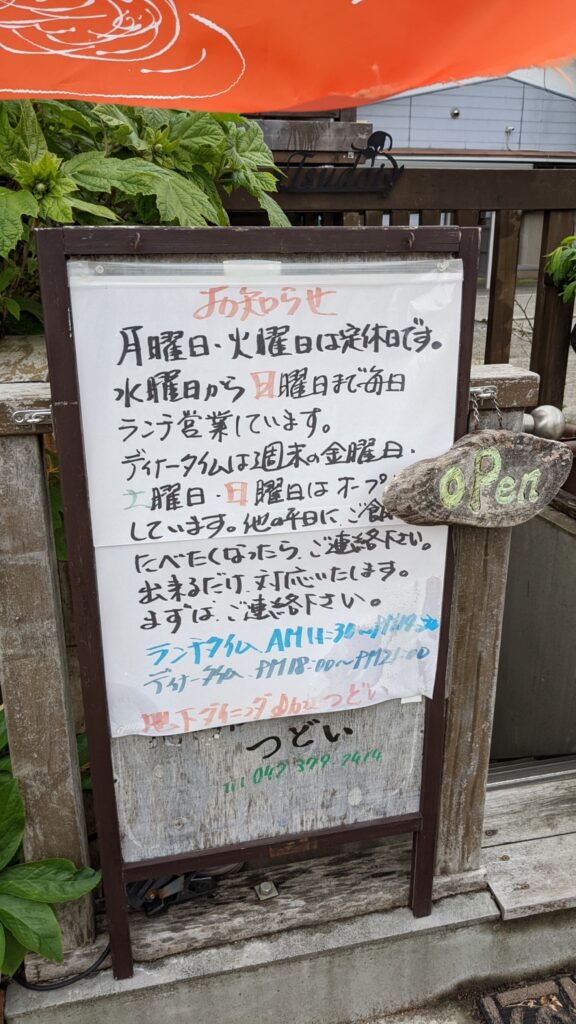 Tsudoly
お知らせ
月曜日・火曜日は定休日です。
水曜日から日曜日まで毎日
ランチ営業しています。
ディナータイムは週末の金曜日・
土曜日・日曜日はオープ
しています。他の平日に、ご飯
たべたくなったら、ご連絡下さい。
出来るだけ対応いたします。
まずは、ご連絡下さい。
oPen
ランチタイム AM11:30〜
ディナータイム PM18:00〜PM21:00
地下ダイニング つどい
つどい
042 379 2414